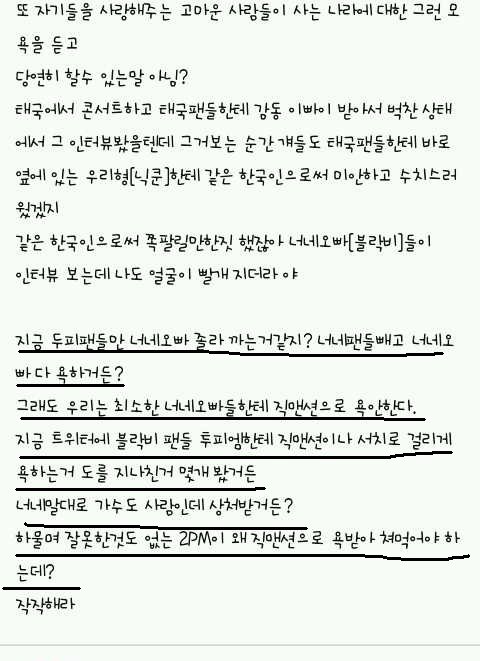 또 자기들을 사랑해주는 고마운 사람들이 사는 나라에 대한 그런 모
욕을 듣고
당연히 할수 있는말 아님?
태국에서 콘서트하고 태국팬들한테 감동 이빠이 받아서 벅찬 상태
에서 그 인터뷰봤을텐데 그거보는 순간 걔들도 태국팬들한테 바로
옆에 있는 우리형[닉쿤]한테 같은 한국인으로써 미안하고 수치스러
웠겠지
같은 한국인으로써 쪽팔릴만한짓 했잖아 너네오빠[블락비]들이
인터뷰 보는데 나도 얼굴이 빨개 지더라 야
지금 두피팬들만 너네오빠 졸라 까는거같지? 너네팬들빼고 너네오
빠 다 욕하거든?
그래도 우리는 최소한 너네오빠들한테 직맨션으로 욕안한다.
지금 트위터에 블락비 팬들 투피엠한테 직맨션이나 서치로 걸리게
욕하는거 도를 지나친거 몇개 봤거든
너네말대로 가수도 사람인데 상처받거든?
하물며 잘못한것도 없는 2PM이 왜 직맨션으로 욕받아 쳐먹어야 하
는데?
작작해라